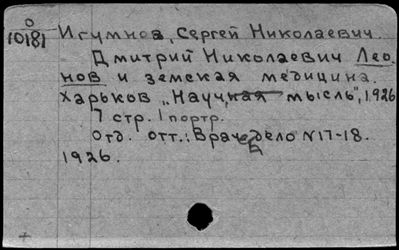 0
10181
Игумнов, Сергей Николаевич.
Дмитрий Николаевич Лео-
нов и земская медицина.
Харьков „Научная мысль", 1926
7 стр. 1 портр.
Отд. отт.: Врач. дело N 17-18.
1926.